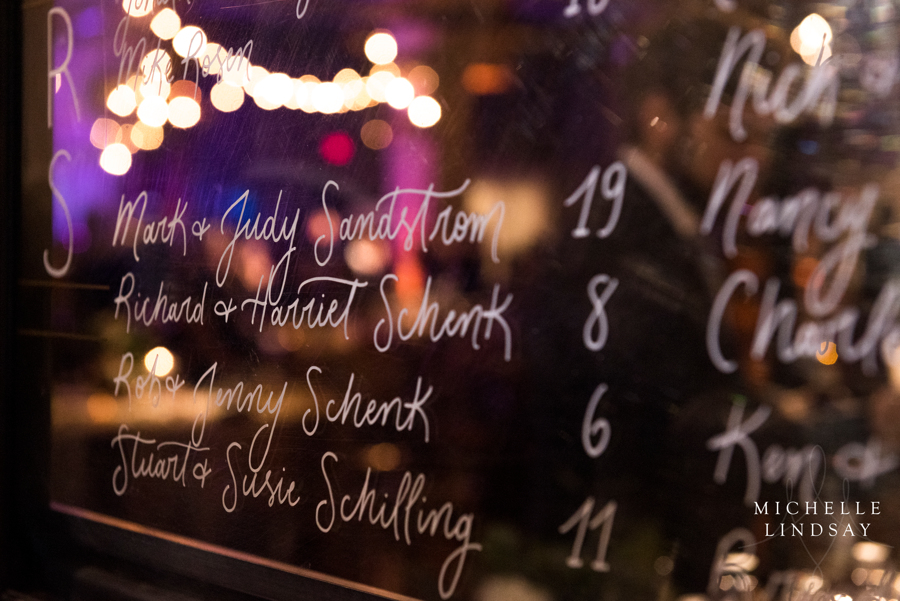 R
Mike Rosen
S
Mark & Judy Sandstrom 19
Richard & Harriet Schenk 8
Rob & Jenny Schenk 6
Stuart & Susie Schilling 11
Nick
Nancy
Charl
Ken &
MICHELLE
LINDSAY